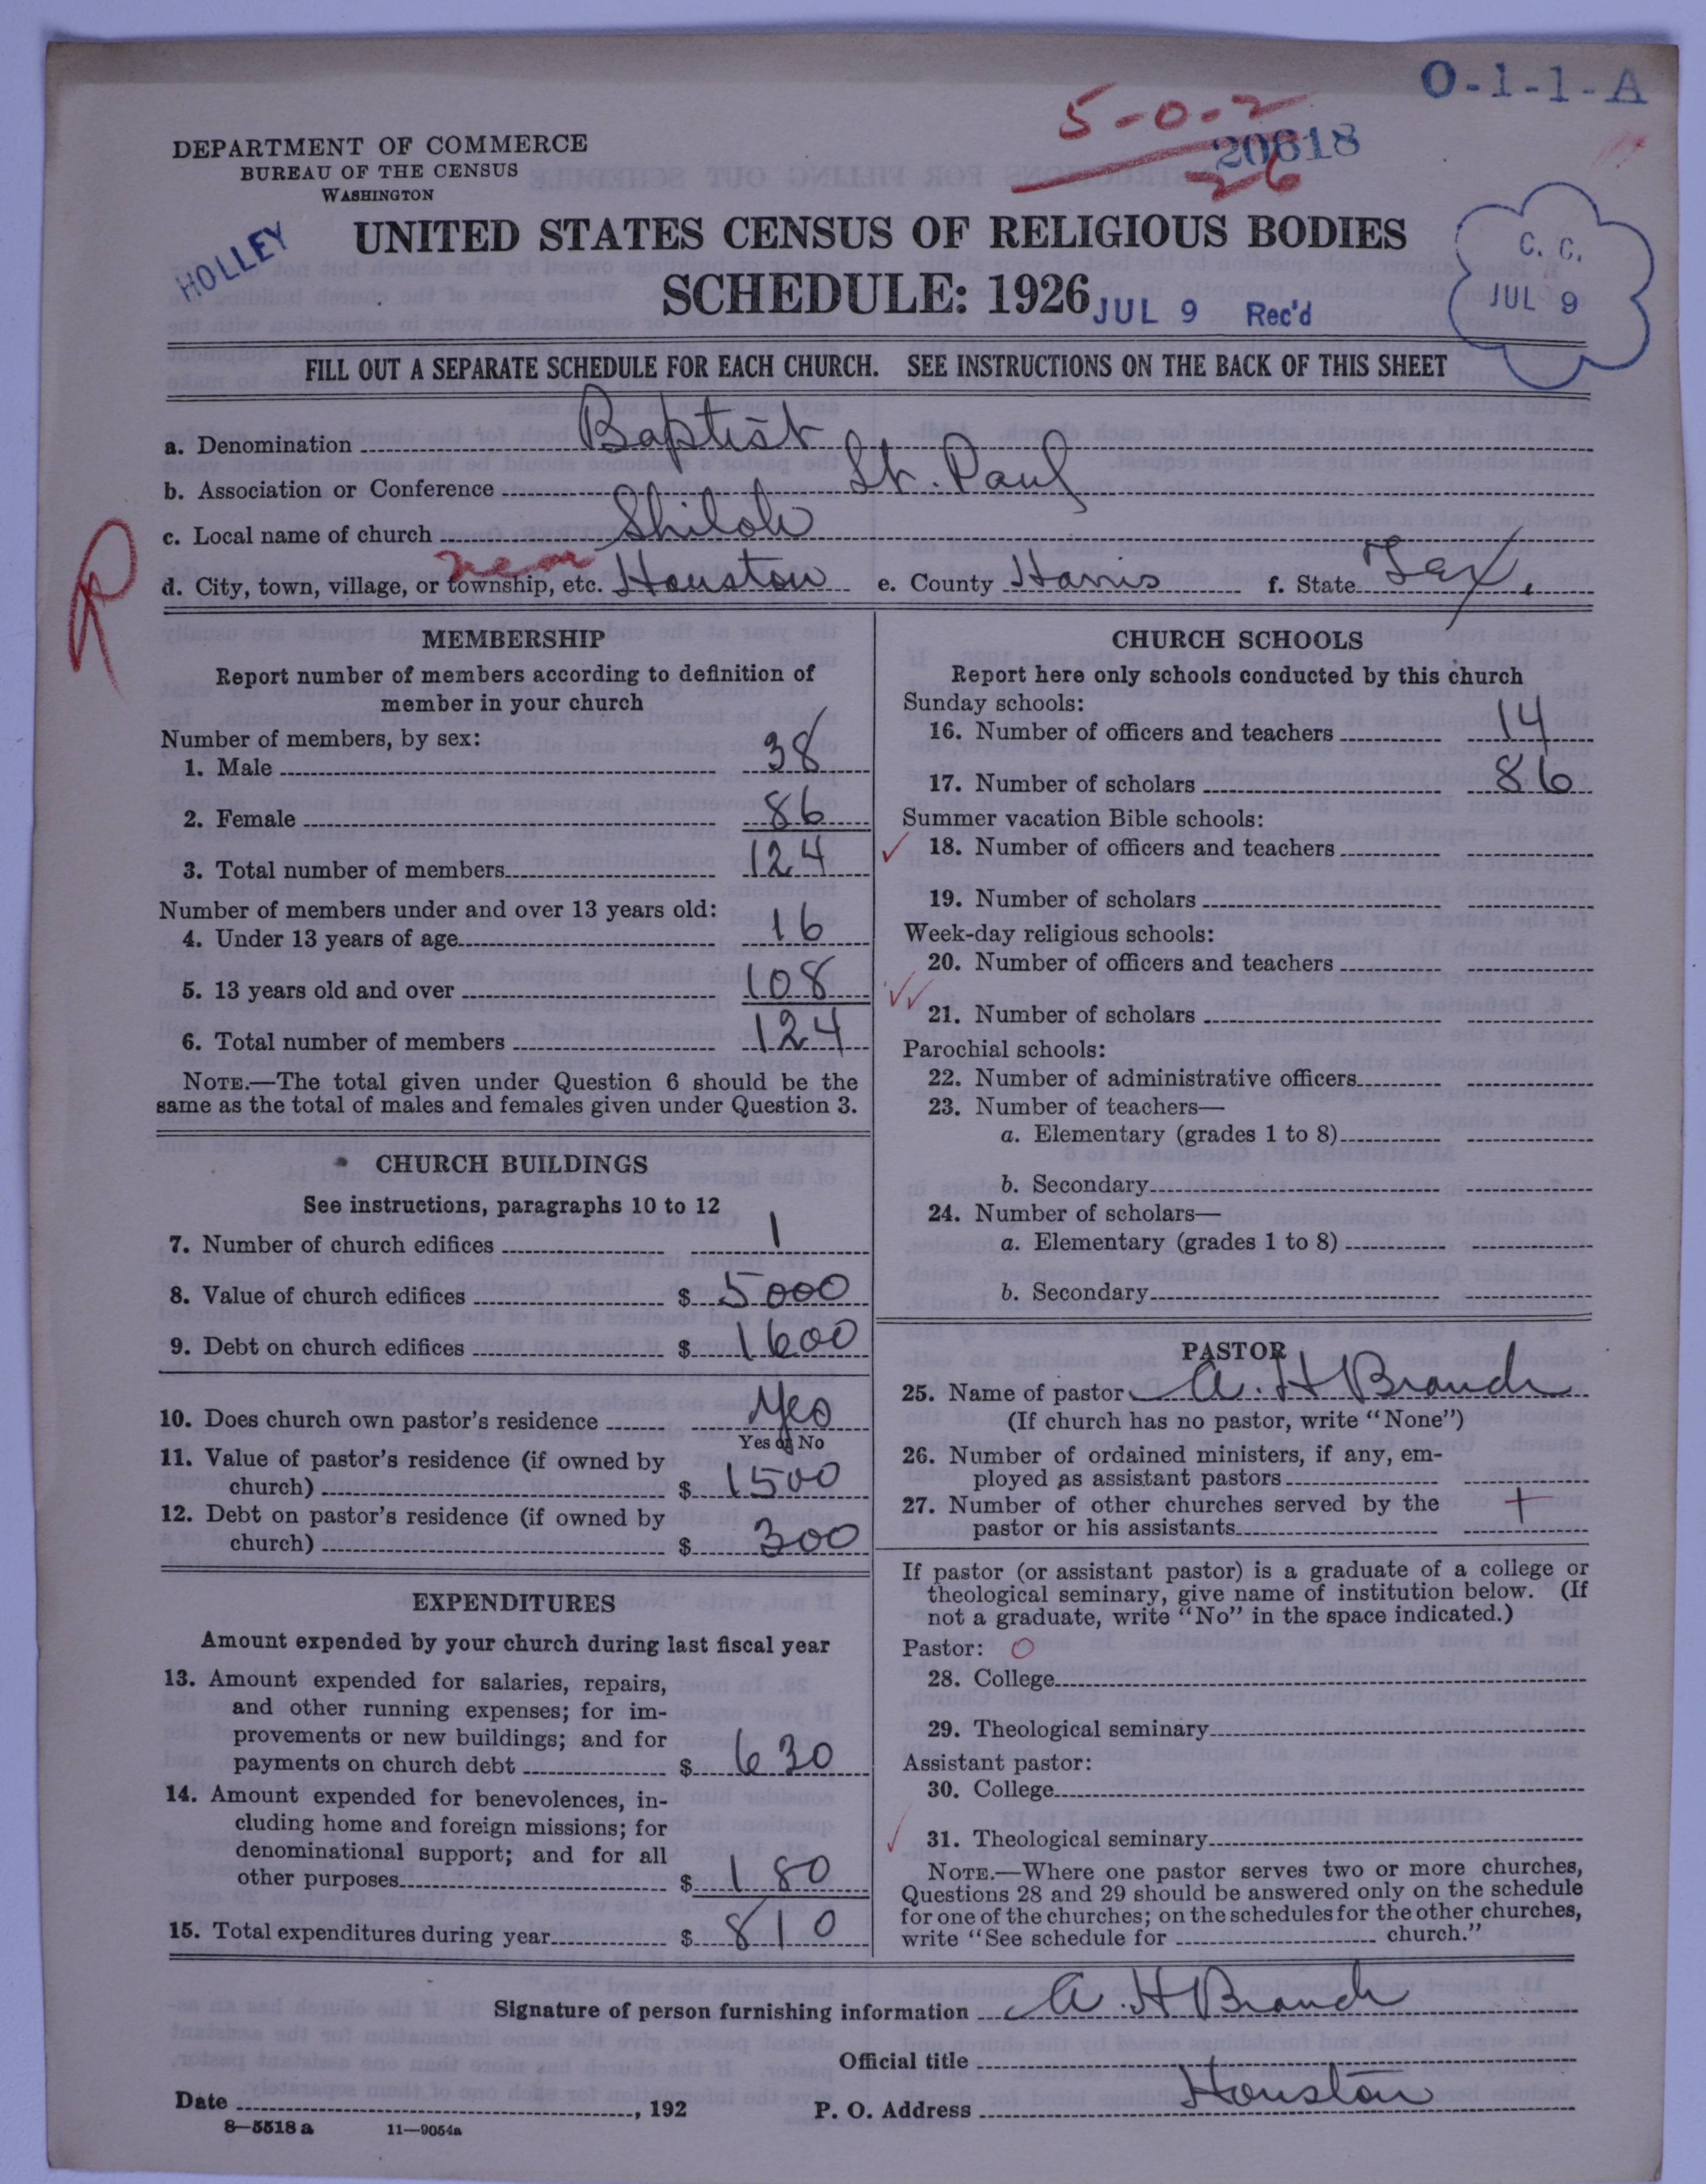 O-1-1-A
5-0-2
20618
26
DEPARTMENT OF COMMERCE
BUREAU OF THE CENSUS
WASHINGTON
HOLLEY
UNITED STATES CENSUS OF RELIGIOUS BODIES
SCHEDULE: 1926
JUL 9 Rec'd
C. C.
JUL 9
FILL OUT A SEPARATE SCHEDULE FOR EACH CHURCH. SEE INSTRUCTIONS ON THE BACK OF THIS SHEET
a. Denomination Baptist
b. Association or Conference St. Paul
c. Local name of church Shiloh
R
near
d. City, town, village, or township, etc. Houston e. County Harris f. State Tex.
MEMBERSHIP
Report number of members according to definition of
member in your church
Number of members, by sex:
1. Male 38
2. Female 86
3. Total number of members 124
Number of members under and over 13 years old:
4. Under 13 years of age 16
5. 13 years old and over 108
6. Total number of members 124
NOTE.—The total given under Question 6 should be the
same as the total of males and females given under Question 3.
CHURCH BUILDINGS
See instructions, paragraphs 10 to 12
7. Number of church edifices 1
8. Value of church edifices $ 5000
9. Debt on church edifices $ 1600
10. Does church own pastor's residence Yes
Yes or No
11. Value of pastor's residence (if owned by
church) $ 1500
12. Debt on pastor's residence (if owned by
church) $ 300
EXPENDITURES
Amount expended by your church during last fiscal year
13. Amount expended for salaries, repairs,
and other running expenses; for im-
provements or new buildings; and for
payments on church debt $ 630
14. Amount expended for benevolences, in-
cluding home and foreign missions; for
denominational support; and for all
other purposes $ 180
15. Total expenditures during year $ 810
CHURCH SCHOOLS
Report here only schools conducted by this church
Sunday schools:
16. Number of officers and teachers 14
17. Number of scholars 86
Summer vacation Bible schools:
18. Number of officers and teachers
19. Number of scholars
Week-day religious schools:
20. Number of officers and teachers
21. Number of scholars
Parochial schools:
22. Number of administrative officers
23. Number of teachers—
a. Elementary (grades 1 to 8)
b. Secondary
24. Number of scholars—
a. Elementary (grades 1 to 8)
b. Secondary
PASTOR
25. Name of pastor A. H Branch
(If church has no pastor, write "None")
26. Number of ordained ministers, if any, em-
ployed as assistant pastors
27. Number of other churches served by the
pastor or his assistants
If pastor (or assistant pastor) is a graduate of a college or
theological seminary, give name of institution below. (If
not a graduate, write "No" in the space indicated.)
Pastor: O
28. College
29. Theological seminary
Assistant pastor:
30. College
31. Theological seminary
NOTE.—Where one pastor serves two or more churches,
Questions 28 and 29 should be answered only on the schedule
for one of the churches; on the schedules for the other churches,
write "See schedule for church."
Signature of person furnishing information A. H Branch
Official title
Date , 192 P. O. Address Houston
8—5518 a 11—9054a